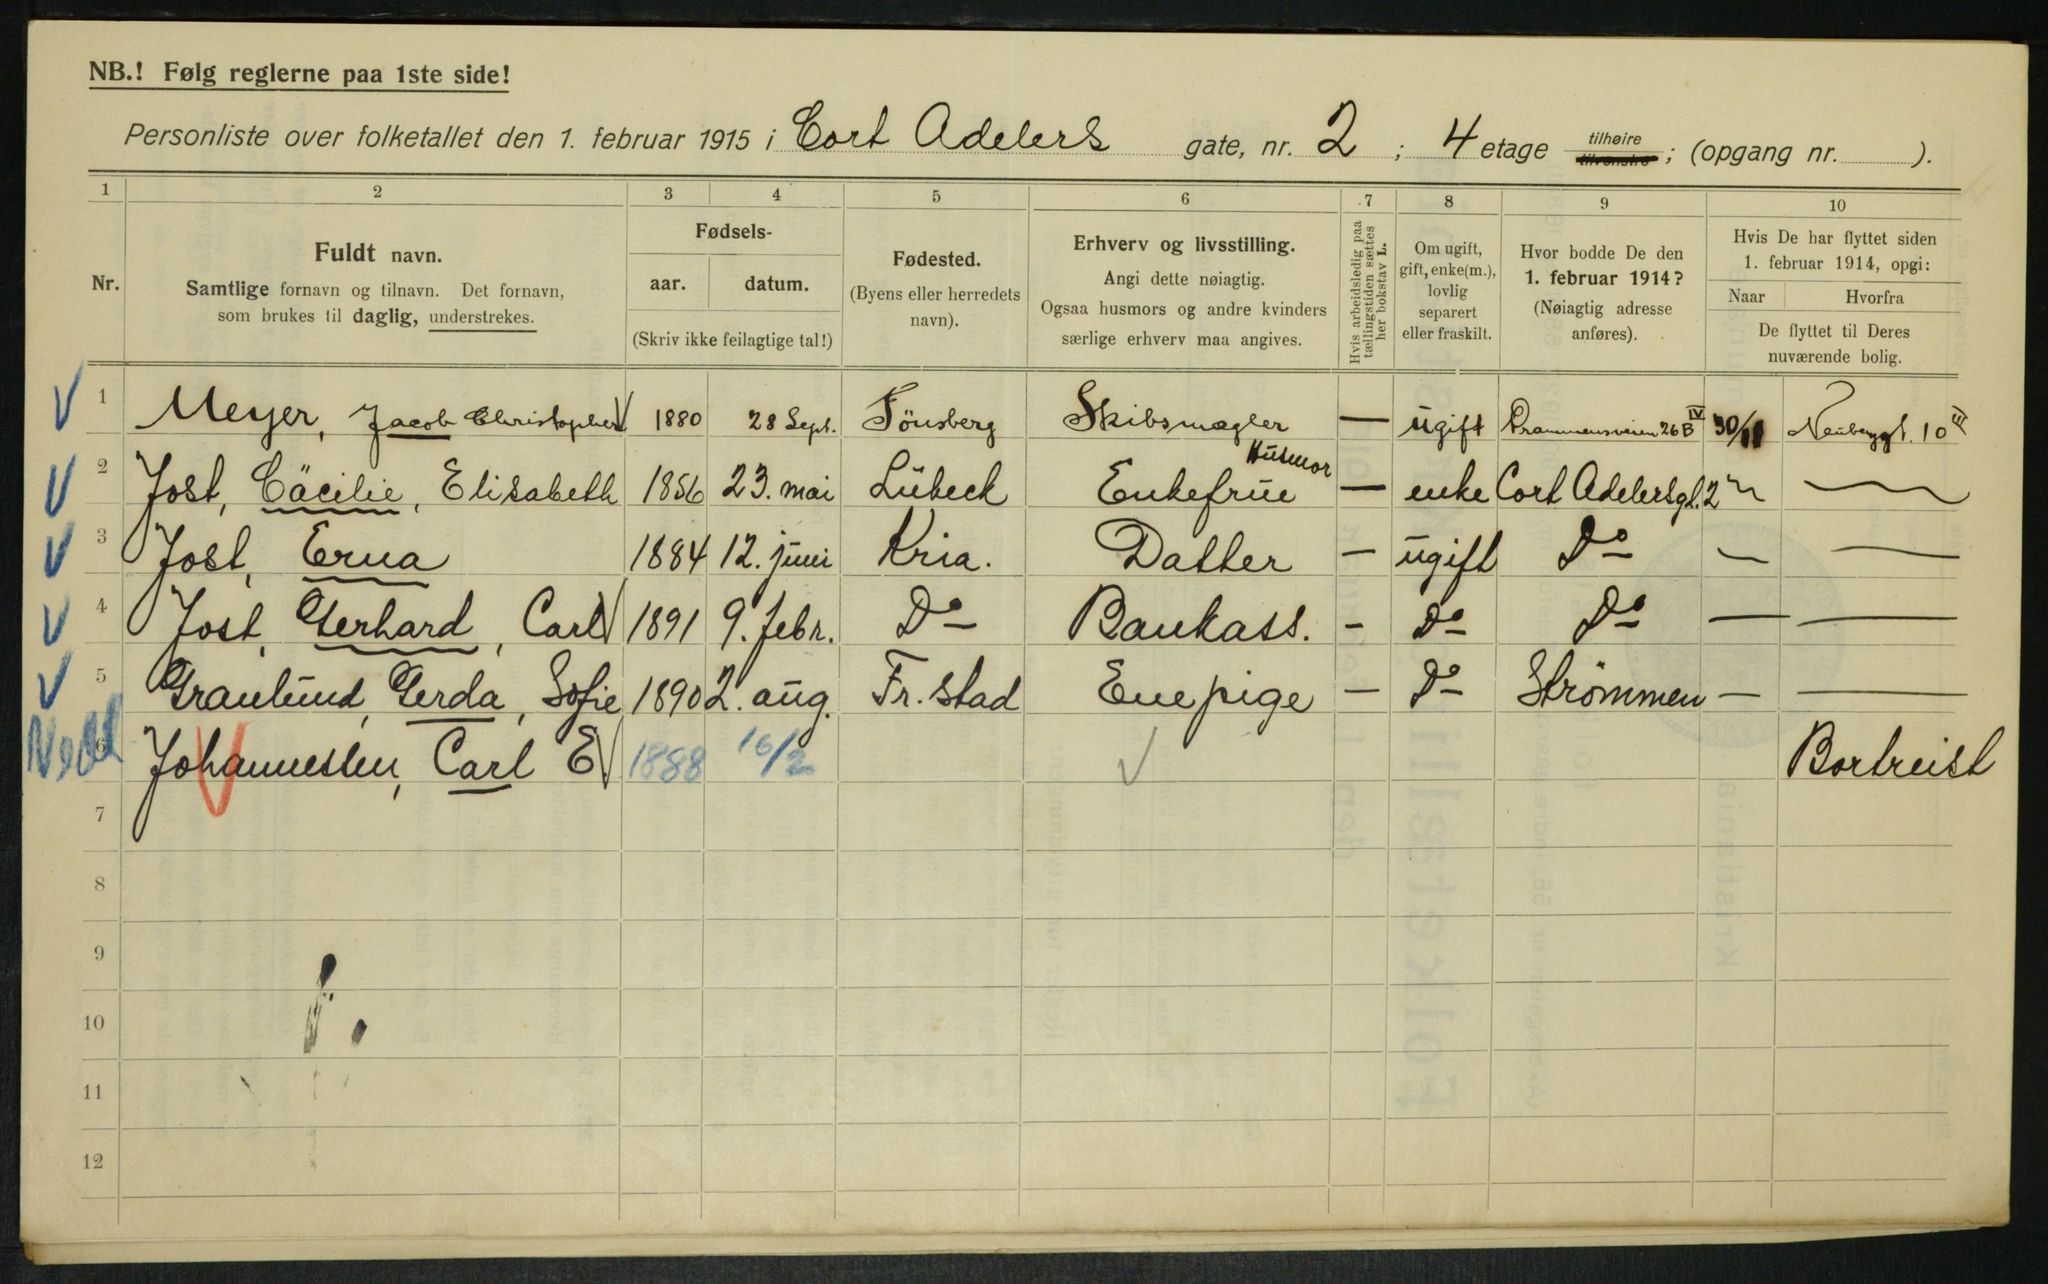 NB.! Følg reglerne paa 1ste side!
Personliste over folketallet den 1. februar 1915 i Cort Adelers gate, nr. 2 ; 4 etage tilhøire tilvenstre ; (opgang nr. ).
1 2 3 4 5 6 7 8 9 10
Nr.
Fuldt navn.
Samtlige fornavn og tilnavn. Det fornavn,
som brukes til daglig, understrekes.
Fødsels-
aar. datum.
(Skriv ikke feilagtige tal!)
Fødested.
(Byens eller herredets
navn).
Erhverv og livsstilling.
Angi dette nøiagtig.
Ogsaa husmors og andre kvinders
særlige erhverv maa angives.
Hvis arbeidsledig paa
tællingstiden sættes
her bokstav L.
Om ugift,
gift, enke(m.),
lovlig
separert
eller fraskilt.
Hvor bodde De den
1. februar 1914?
(Nøiagtig adresse
anføres).
Hvis De har flyttet siden
1. februar 1914, opgi:
Naar Hvorfra
De flyttet til Deres
nuværende bolig.
1 Meyer, Jacob Christopher 1880 28 Sept. Tönsberg Skibsmægler — ugift Drammensveien 26B IV 30/11 Neuberggt. 10 III
2 Jost, Cäcilie, Elisabeth 1856 23. mai Lübeck Enkefrue Husmor — enke Cort Adelersgt. 2
3 Jost, Erna 1884 12. juni Kria. Datter — ugift Do — —
4 Jost, Gerhard, Carl 1891 9. febr. Do Bankass. - Do Do — —
5 Granlund, Gerda, Sofie 1890 2. aug. Fr. stad Enepige — Do Strömmen — —
6 Johannesen, Carl E 1888 16/2 Bortreist
7
8
9
10
11
12